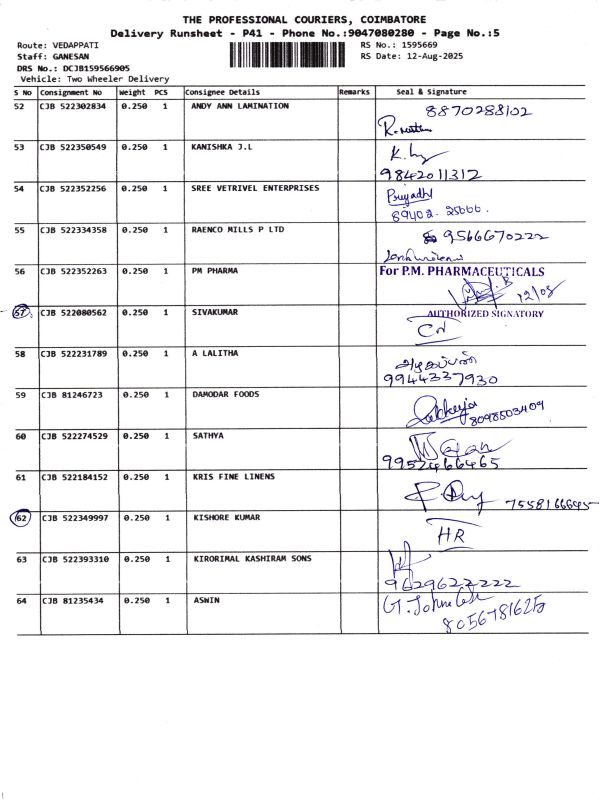 THE PROFESSIONAL COURIERS, COIMBATORE
Delivery Runsheet - P41 - Phone No.:9047080280 - Page No.:5
Route: VEDAPPATI
RS No.: 1595669
Staff: GANESAN
RS Date: 12-Aug-2025
DRS No.: DCJB159566905
Vehicle: Two Wheeler Delivery
S No Consignment No Weight PCS Consignee Details Remarks Seal & Signature
52 CJB 522302834 0.250 1 ANDY ANN LAMINATION 8870288102
53 CJB 522350549 0.250 1 KANISHKA J.L
9842011312
54 CJB 522352256 0.250 1 SREE VETRIVEL ENTERPRISES Priyadh
89402 - 25666.
55 CJB 522334358 0.250 1 RAENCO MILLS P LTD 9566670222
56 CJB 522352263 0.250 1 PM PHARMA For P.M. PHARMACEUTICALS
12/08
57 CJB 522080562 0.250 1 SIVAKUMAR AUTHORIZED SIGNATORY
CN
58 CJB 522231789 0.250 1 A LALITHA அழகப்பன்
9944337930
59 CJB 81246723 0.250 1 DAMODAR FOODS 8098503409
60 CJB 522274529 0.250 1 SATHYA
9952466465
61 CJB 522184152 0.250 1 KRIS FINE LINENS 7558166645
62 CJB 522349997 0.250 1 KISHORE KUMAR HR
63 CJB 522393310 0.250 1 KIRORIMAL KASHIRAM SONS
9629622222
64 CJB 81235434 0.250 1 ASWIN
8056781625